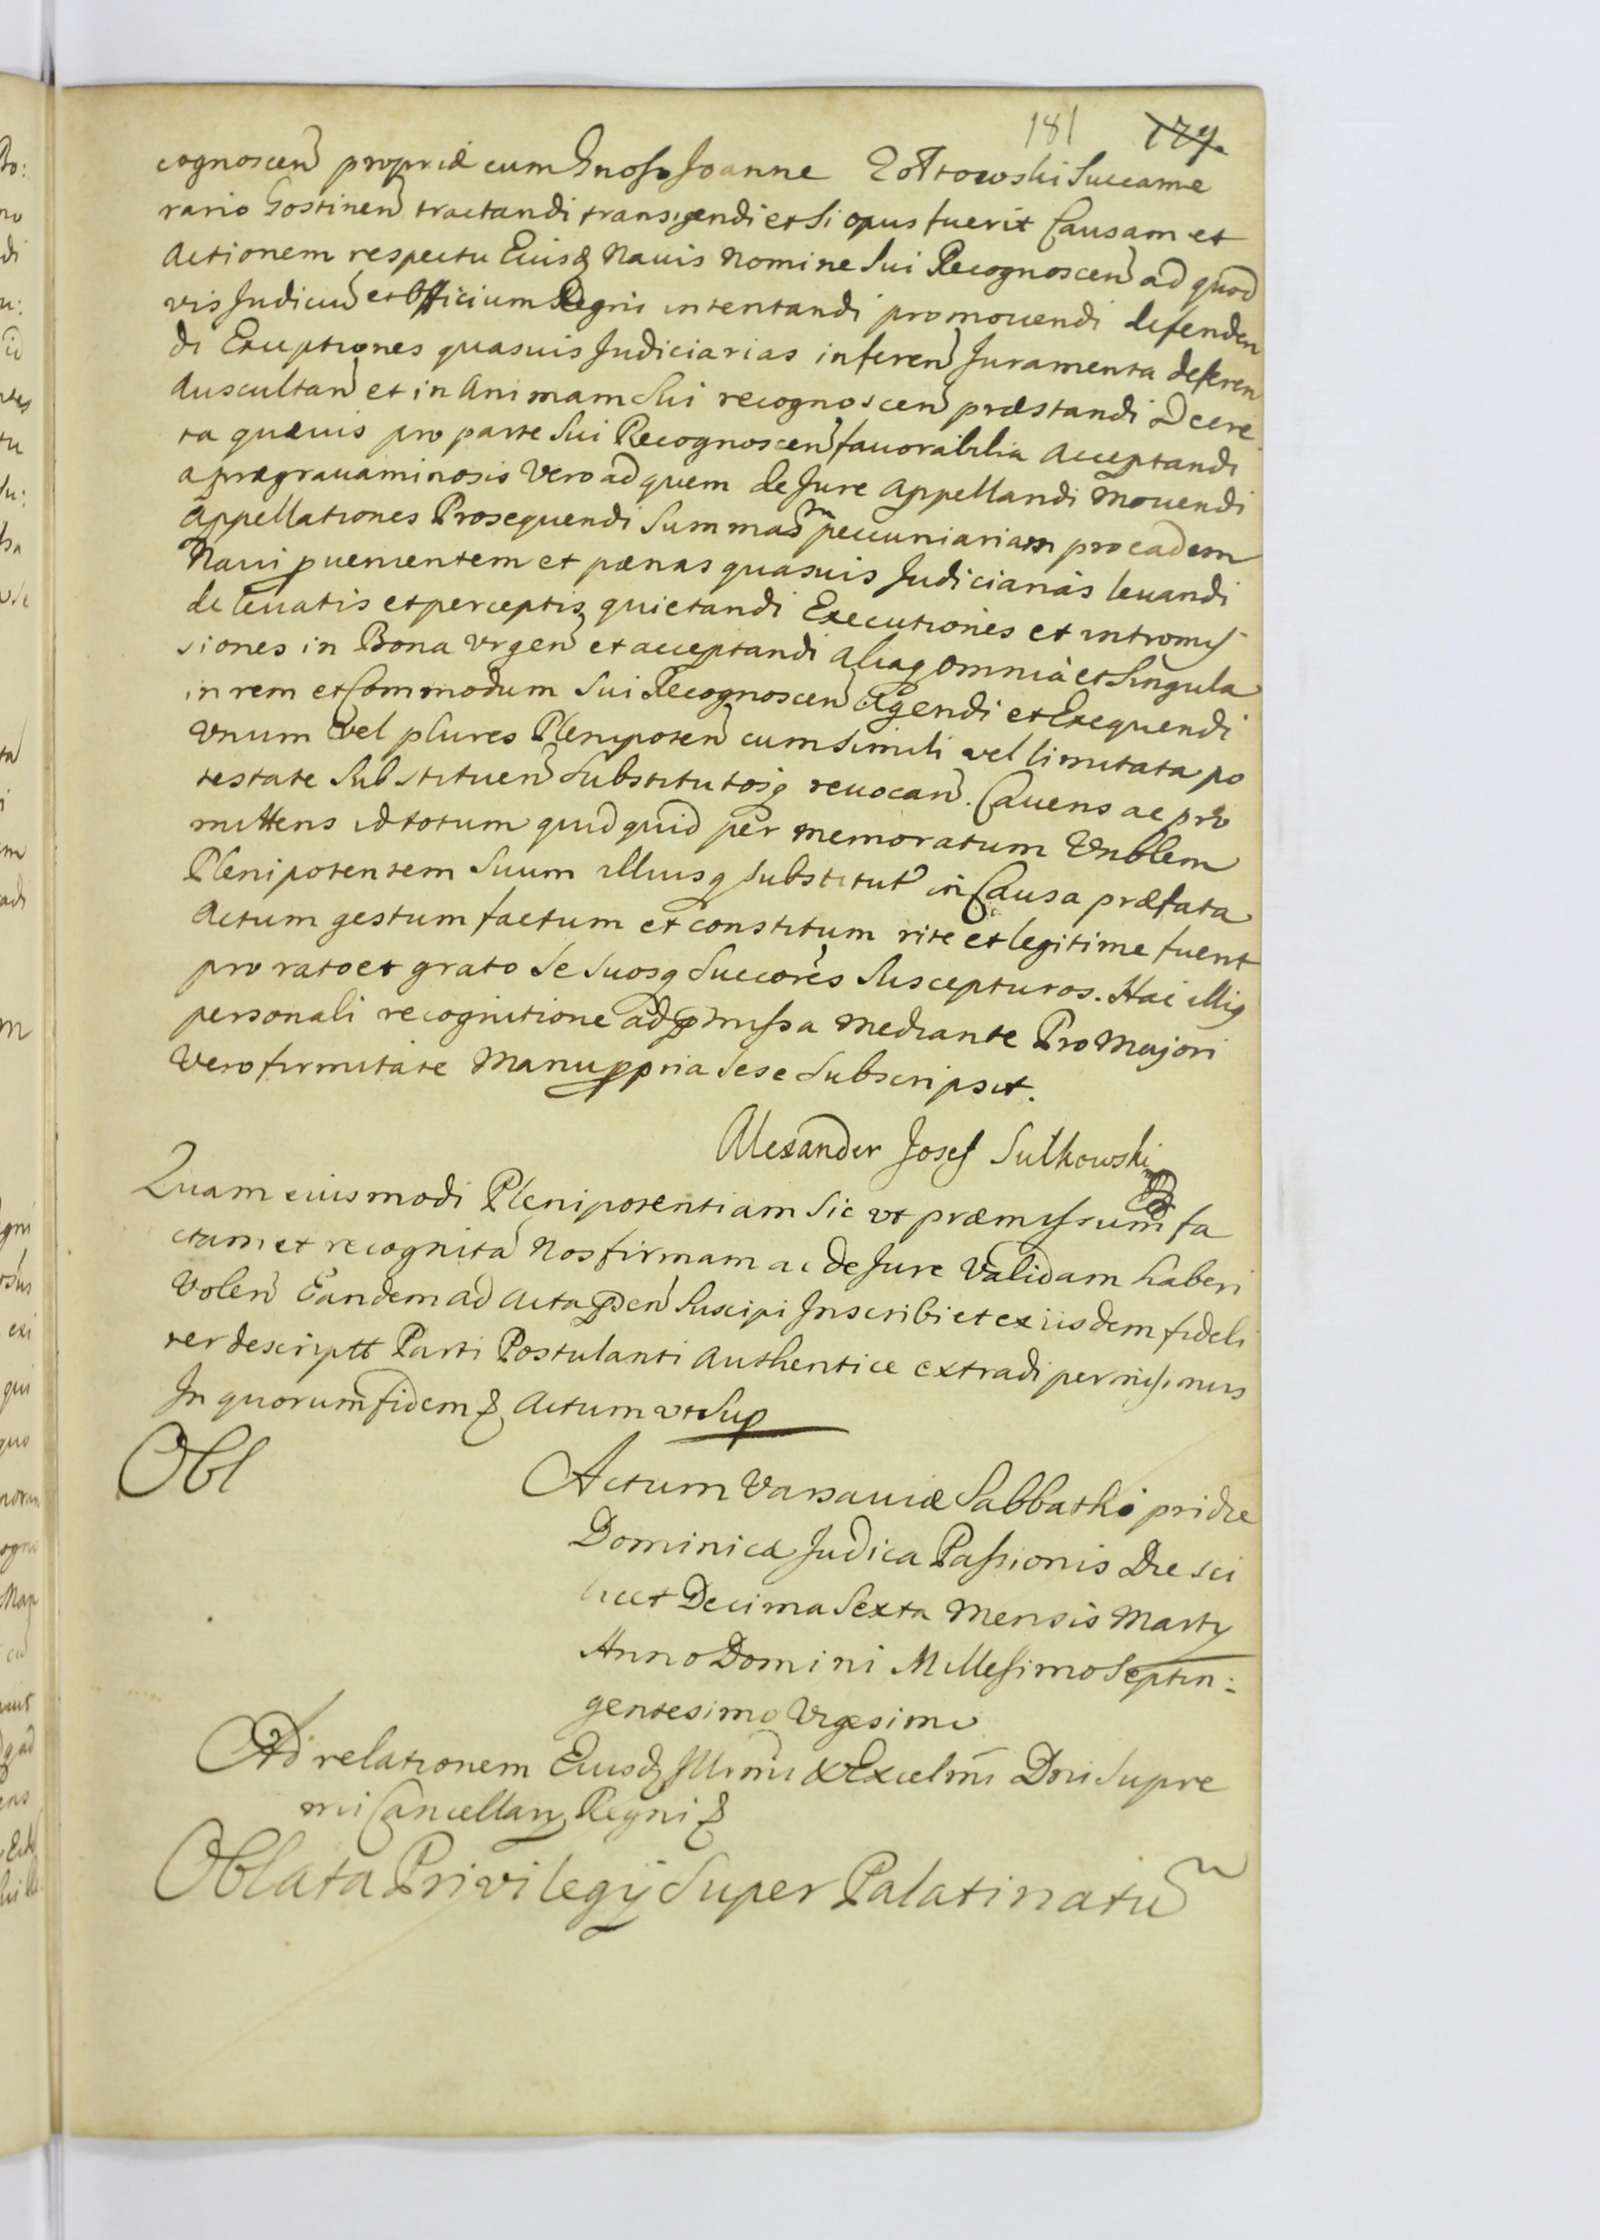 181 179.
cognoscen̄ propriæ cum Gnoso Joanne Zołtowski Succame
rario Gostinen̄ tractandi transigendi et si opus fuerit Causam et
Actionem respectu Eiusq Navis Nomine Sui Recognoscen̄ ad quod
vis Judiciū et Officium Regni intentandi promouendi defenden
di Exceptiones quasuis Judiciarias inferen̄ Juramenta deferen
Auscultan̄ et in Animam Sui recognoscen̄ præstandi Decre
ta quæuis pro parte Sui Recognoscen̄ fauorabilia Acceptandi
a prægrauaminosis Vero ad quem de Jure Appellandi Mouendi
Appellationes Prosequendi Summam peccuniariam pro eadem
Naui puenientem et pænas quasuis Judiciarias leuandi
de leuatis et perceptis quietandi Executiones et intromis
siones in Bona urgen̄ et acceptandi aliaq omnia et Singula
in rem et Commodum Sui Recognoscen̄ Agendi et Exequendi
Vnum vel plures Plenipoten̄ cum simili vel limitata po
testate Substituen̄ Substitutosq reuocan̄. Cauens ac pro
mittens id totum quidquid per memoratum Vnblem
Plenipotentem Suum illiusq substitut in Causa præfata
Actum gestum factum et constitum rite et legitime fuerit
pro rato et grato Se Suosq Succores Suscepturos. Hac illig
personali recognitione ad præmissa mediante Pro Majori
Vero firmitate Manu ppria sese Subscripsit.
Alexander Josef Sulkowski
Quam eiusmodi Plenipotentiam Sic ut præmissum fa
ctam et recognitā Nos firmam ac de Jure Validam haberi
Volen̄ Eandem ad Acta pden̄ Suscipi Inscribi et ex iisdem fideli
ter descriptt Parti Postulanti Authentice extradi permisimus
In quorum fidem & Actum ut Sup
Obl
Actum Varsauiæ Sabbatho pridie
Dominicæ Judica Passionis Die sci
licet Decima Sexta Mensis Martij
Anno Domini Millesimo Septin:
gentesimo Vigesimo
Ad relationem Eiusq Illrmi & Excelmi Dni Supre
mi Cancellarij Regni &
Oblata Privilegij Super Palatinatū